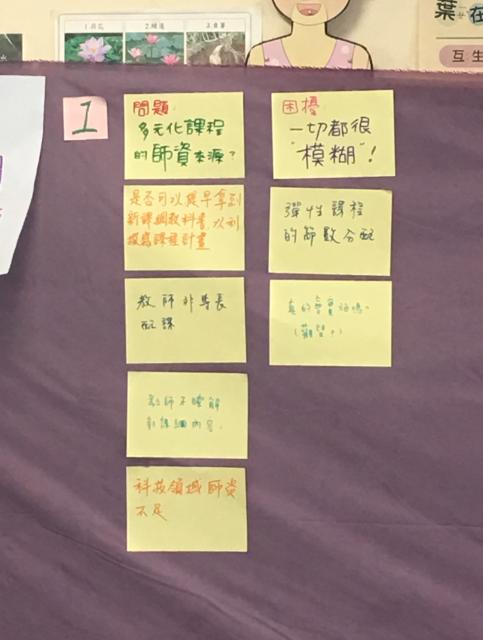 1
問題:
多元化課程
的師資來源？
是否可以提早拿到
新課綱教科書,以利
撰寫課程計畫
教師非專長
配課
教師不瞭解
新課綱內容。
科技領域師資
不足
困擾:
一切都很
"模糊"！
彈性課程
的節數分配
真的會實施嗎?
(觀望中)
1.荷花
2.睡蓮
葉在
互生